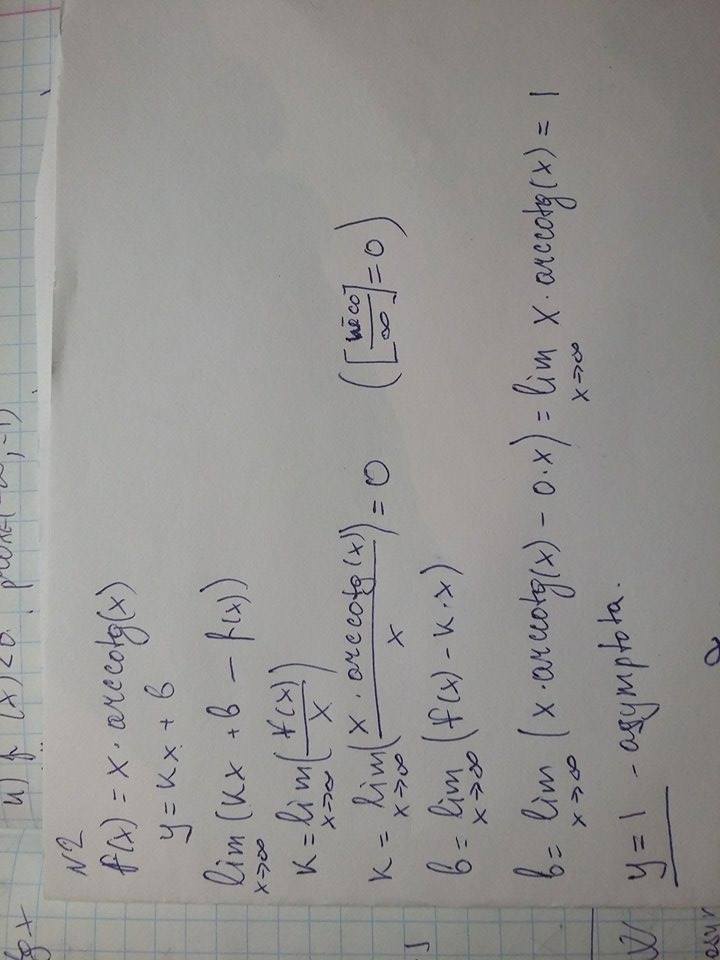 N2
f(x) = x · arccotg(x)
y = kx + b
lim (kx + b − f(x))
x→∞
k = lim (f(x)/x)
x→∞
k = lim (x · arccotg(x)/x) = 0 ([něco/∞] = 0)
x→∞
b = lim (f(x) − k · x)
x→∞
b = lim (x · arccotg(x) − 0 · x) = lim x · arccotg(x) = 1
x→∞ x→∞
y = 1 - asymptota.